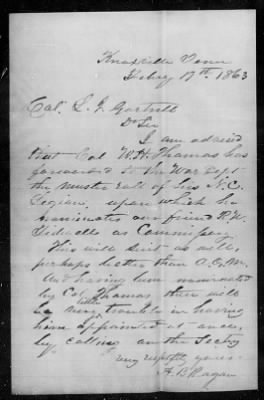 Knoxville Tenn
Feby 17th 1863
Col. L. J. Gartrell
Dr Sir
I am advised
that Col W. H. Thomas has
forwarded to the War Dept
the Muster Roll of his N.C.
Legion, upon which he
nominates our friend R. H.
as Commissary
This will suit as well,
perhaps better than A.Q.M.
And having been nominated
by Col Thomas there will
be very little trouble in having
him appointed at once,
by calling on the Secty
very respctfly yours